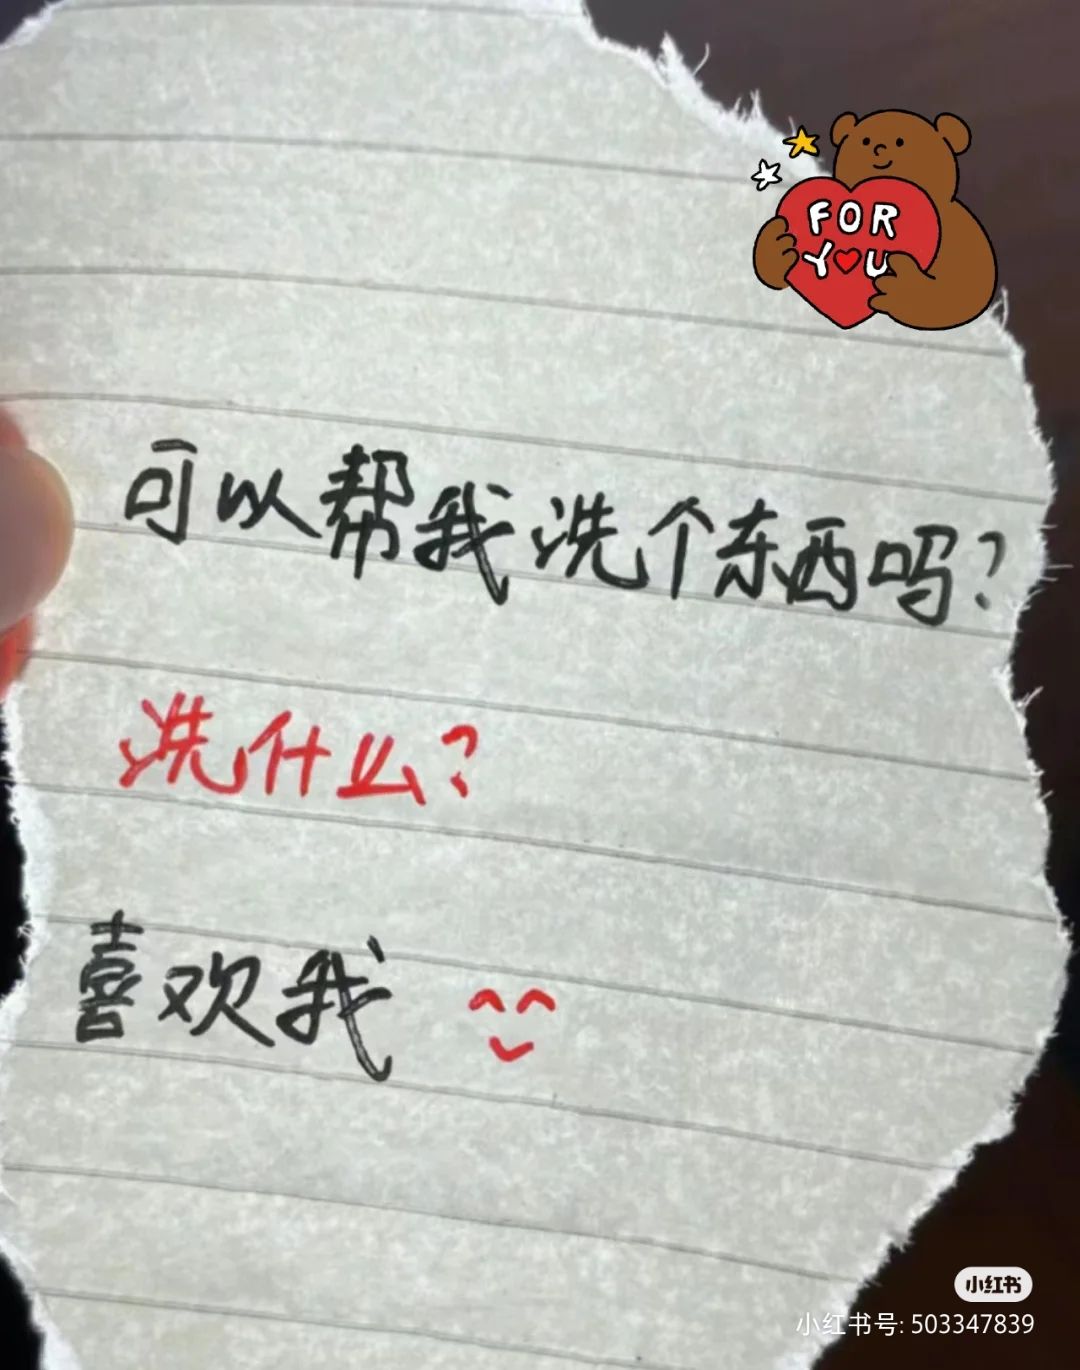 FOR
YOU
可以帮我洗个东西吗?
洗什么?
喜欢我
小红书
小红书号: 503347839